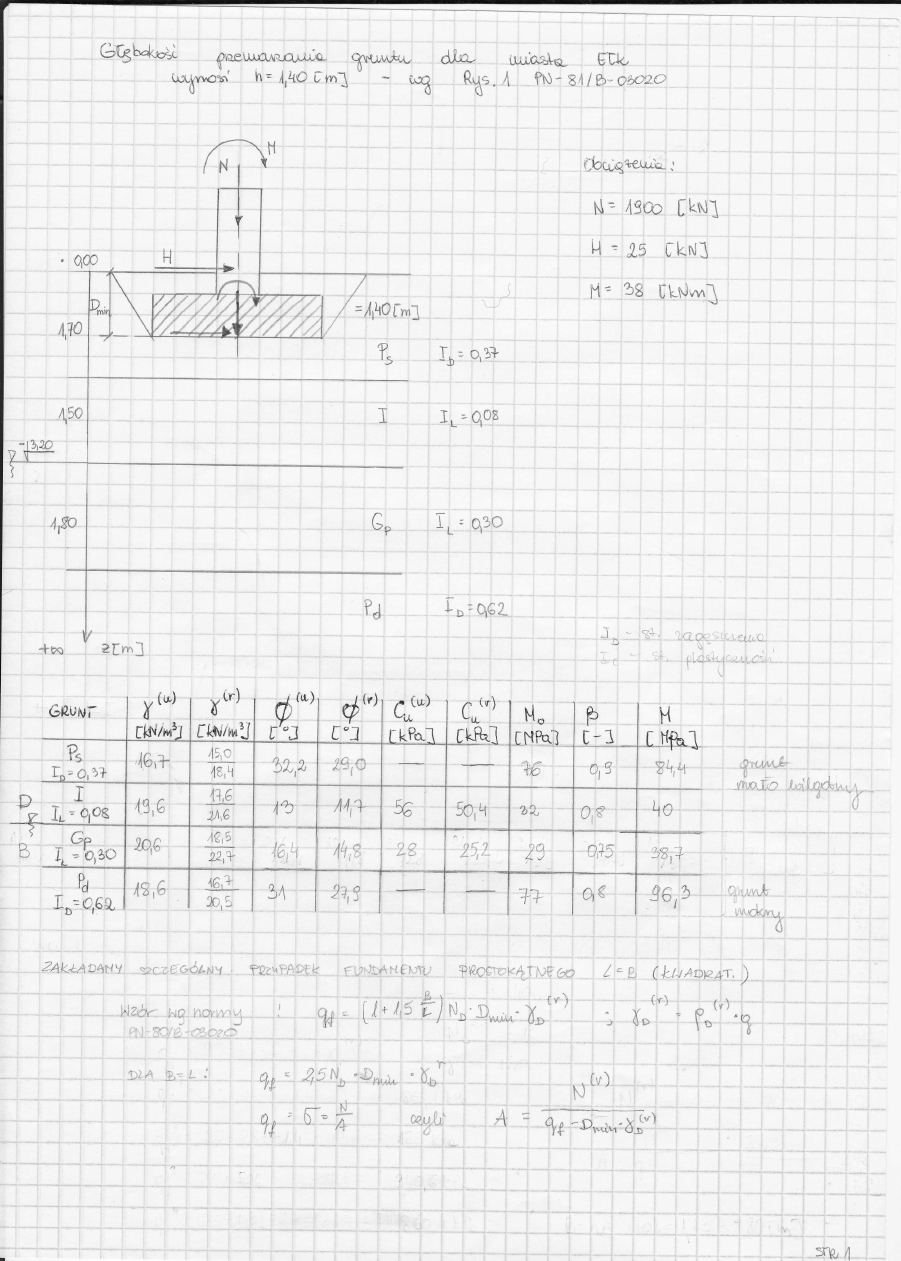 Głębokość przemarzania gruntu dla miasta Ełk
wynosi h = 1,40 [m] - wg Rys. 1 PN-81/B-03020
M
N
Obciążenia:
N = 1900 [kN]
H = 25 [kN]
M = 38 [kNm]
0,00
H
Dmin
= 1,40 [m]
1,70
Ps ID = 0,37
1,50
I IL = 0,08
-3,20
1,80
Gp IL = 0,30
Pd ID = 0,62
ID - st. zagęszczenia
IL - st. plastyczności
+∞ z [m]
GRUNT γ(u) [kN/m³] γ(r) [kN/m³] ϕ(u) [°] ϕ(r) [°] Cu(u) [kPa] Cu(r) [kPa] Mo [MPa] β [-] M [MPa]
Ps ID = 0,37 16,7 15,0 / 18,4 32,2 29,0 — — 76 0,9 84,4 grunt mało wilgotny
D I IL = 0,08 19,6 17,6 / 21,6 13 11,7 56 50,4 32 0,8 40
B Gp IL = 0,30 20,6 18,5 / 22,7 16,4 14,8 28 25,2 29 0,75 38,7
Pd ID = 0,62 18,6 16,7 / 20,5 31 27,9 — — 77 0,8 96,3 grunt mokry
ZAKŁADAMY SZCZEGÓLNY PRZYPADEK FUNDAMENTU PROSTOKĄTNEGO L=B (KWADRAT.)
Wzór wg normy PN-80/B-03020 : qf = (1 + 1,5 B/L) ND · Dmin · γD(r) ; γD(r) = ρD(r) · g
DLA B=L : qf = 2,5 ND · Dmin · γD r
qf = σ = N/A czyli A = N(r) / qf - Dmin · γD(r)
STR 1